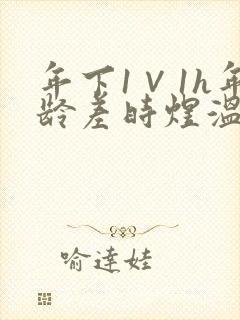 年下1V1h年
龄差时煜温
喻达娃